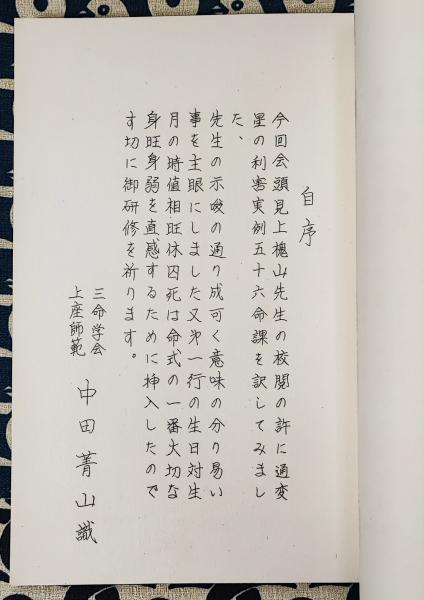 自序
今回会頭見上槐山先生の校閲の許に通変
星の利害実例五十六命課を訳してみまし
た、
先生の示唆の通り成可く意味の分り易い
事を主眼にしました又㐧一行の生日対生
月の時値相旺休囚死は命式の一番大切な
身旺身弱を直感するために挿入したので
す切に御研修を祈ります。
三命学会
上座師範
中田菁山識